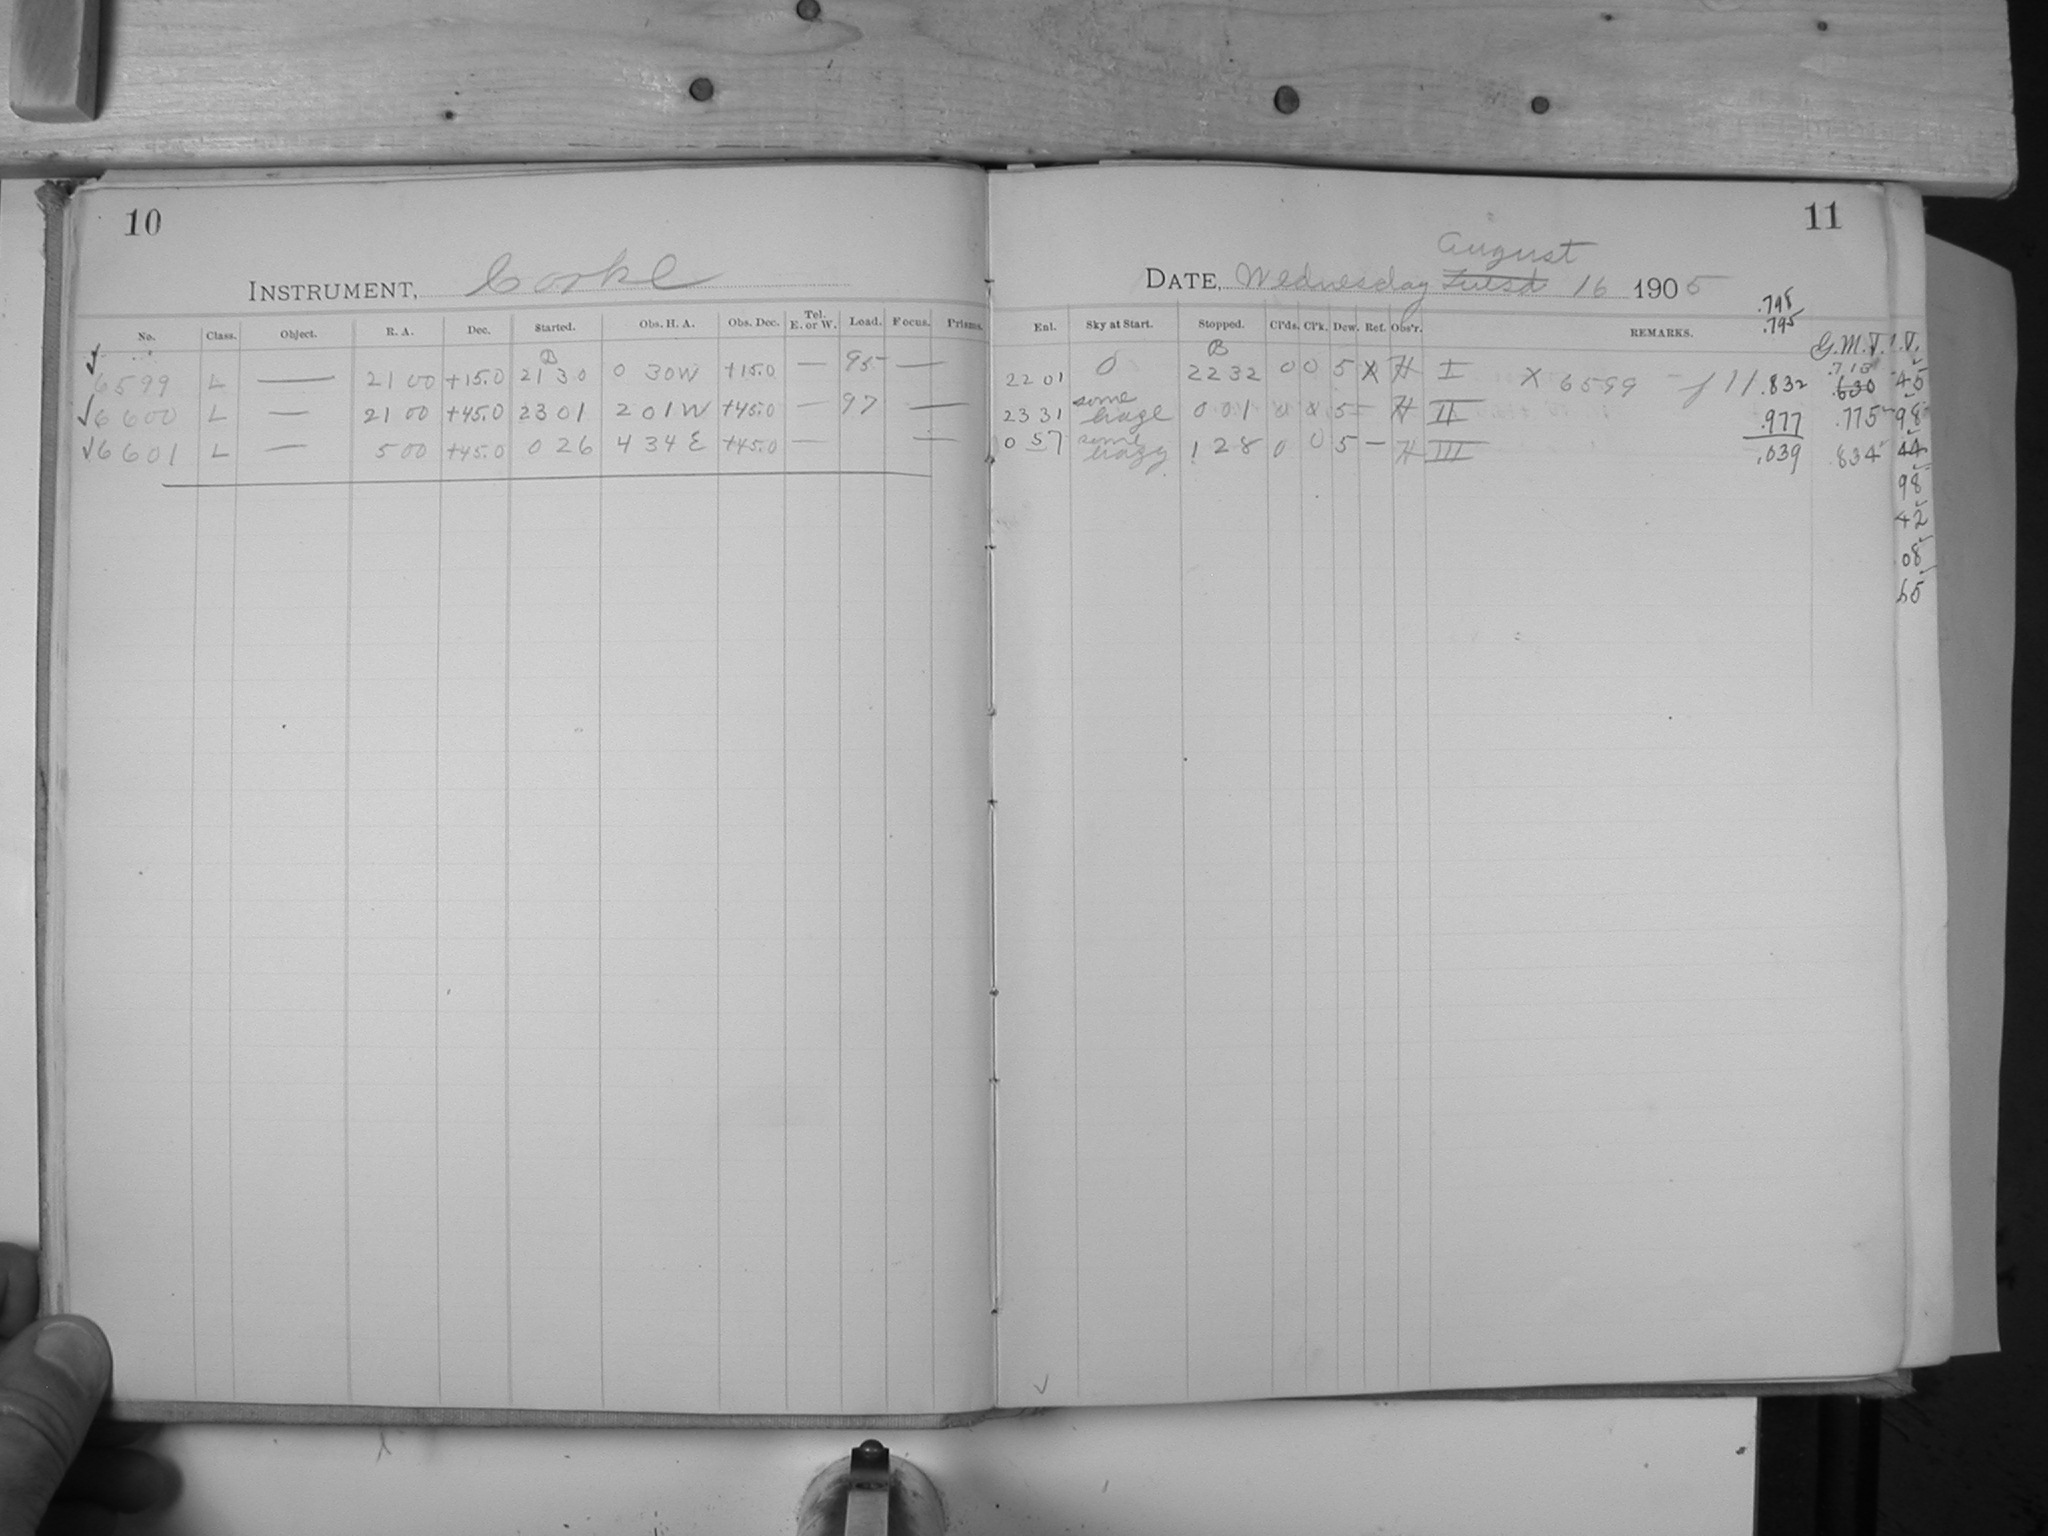 10
INSTRUMENT, Cooke
No. Class. Object. R. A. Dec. Started. Obs. H. A. Obs. Dec. Tel. E. or W. Load. Focus. Prisms.
√ 6599 L — 21 00 +15.0 B 21 30 0 30W +15.0 — 95 —
√ 6600 L — 21 00 +45.0 23 01 2 01W +45.0 — 97 —
√ 6601 L — 5 00 +45.0 0 26 4 34E +45.0 — —
11
August
DATE, Wednesday Tuesd 16 1905
.795
.795
Enl. Sky at Start. Stopped. Cl'ds. Cl'k. Dew. Ref. Obs'r. REMARKS. G.M.T.
22 01 0 B 22 32 0 0 5 X H I X 6599 - f 11 .832 .630 45
23 31 some haze 0 01 5 - H II .977 .775 98
0 57 some hazy 1 28 0 0 5 - H III .039 .834 44
98
42
08
65